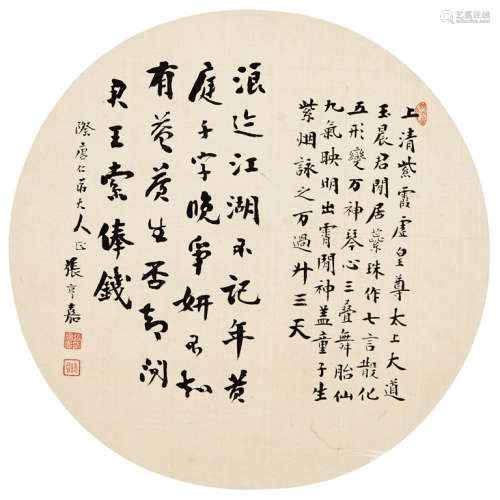 上清紫霞虛皇尊太上大道
玉晨君閒居蘂珠作七言散化
五形變万神琴心三疊舞胎仙
九氣映明出霄間神盖童子生
紫烟詠之万過升三天
浪迹江湖不記年黃
庭千字晚爭妍不知
有益養生否却問
君王索俸錢
際仁弟大人正 張亨嘉
艺狐在线
artfoxlive.com